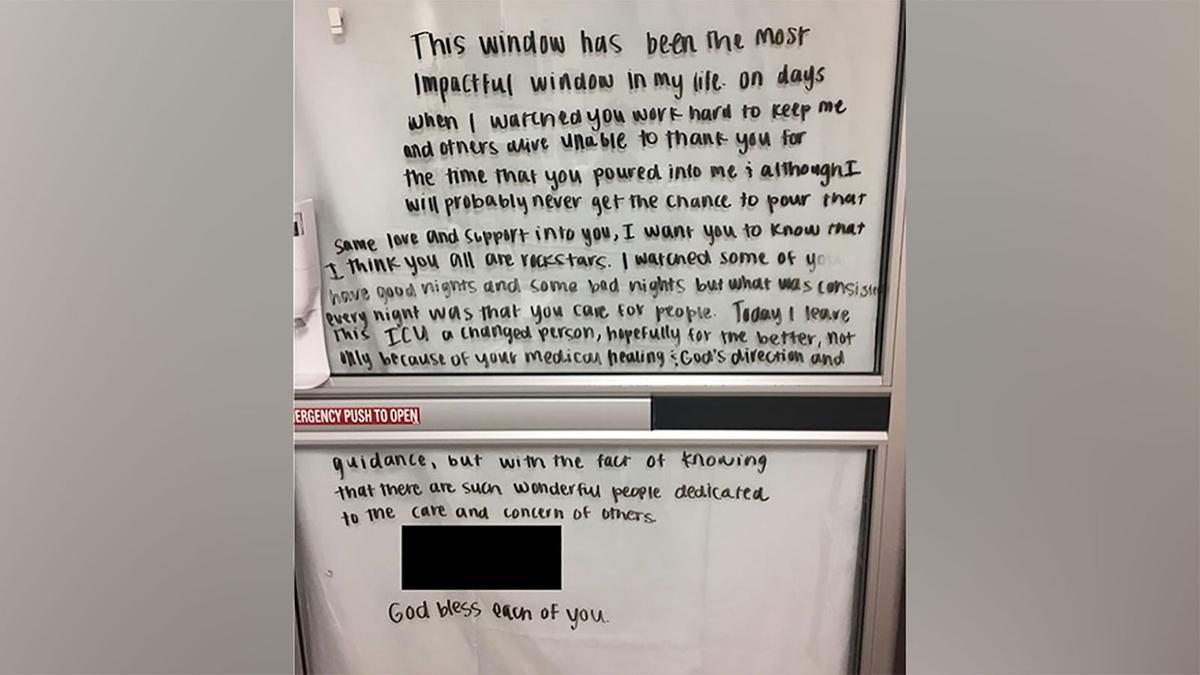 This window has been the most
impactful window in my life. on days
when I watched you work hard to keep me
and others alive unable to thank you for
the time that you poured into me & although I
will probably never get the chance to pour that
same love and support into you, I want you to know that
I think you all are rockstars. I watched some of you
have good nights and some bad nights but what was consiste
every night was that you care for people. Today I leave
this ICU a changed person, hopefully for the better, not
only because of your medical healing & God's direction and
ERGENCY PUSH TO OPEN
guidance, but with the fact of knowing
that there are such wonderful people dedicated
to the care and concern of others.
God bless each of you.